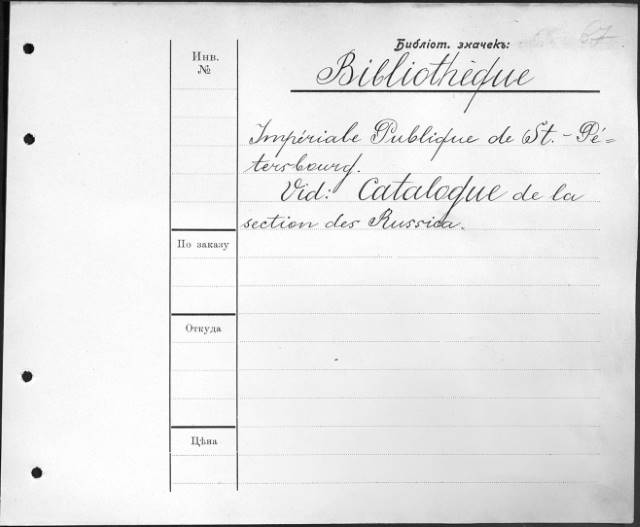 Библіот. значекъ:
67
Инв.
№
Bibliothèque
Impériale Publique de St.-Pé=
tersbourg.
Vid: Catalogue de la
section des Russica.
По заказу
Откуда
Цѣна